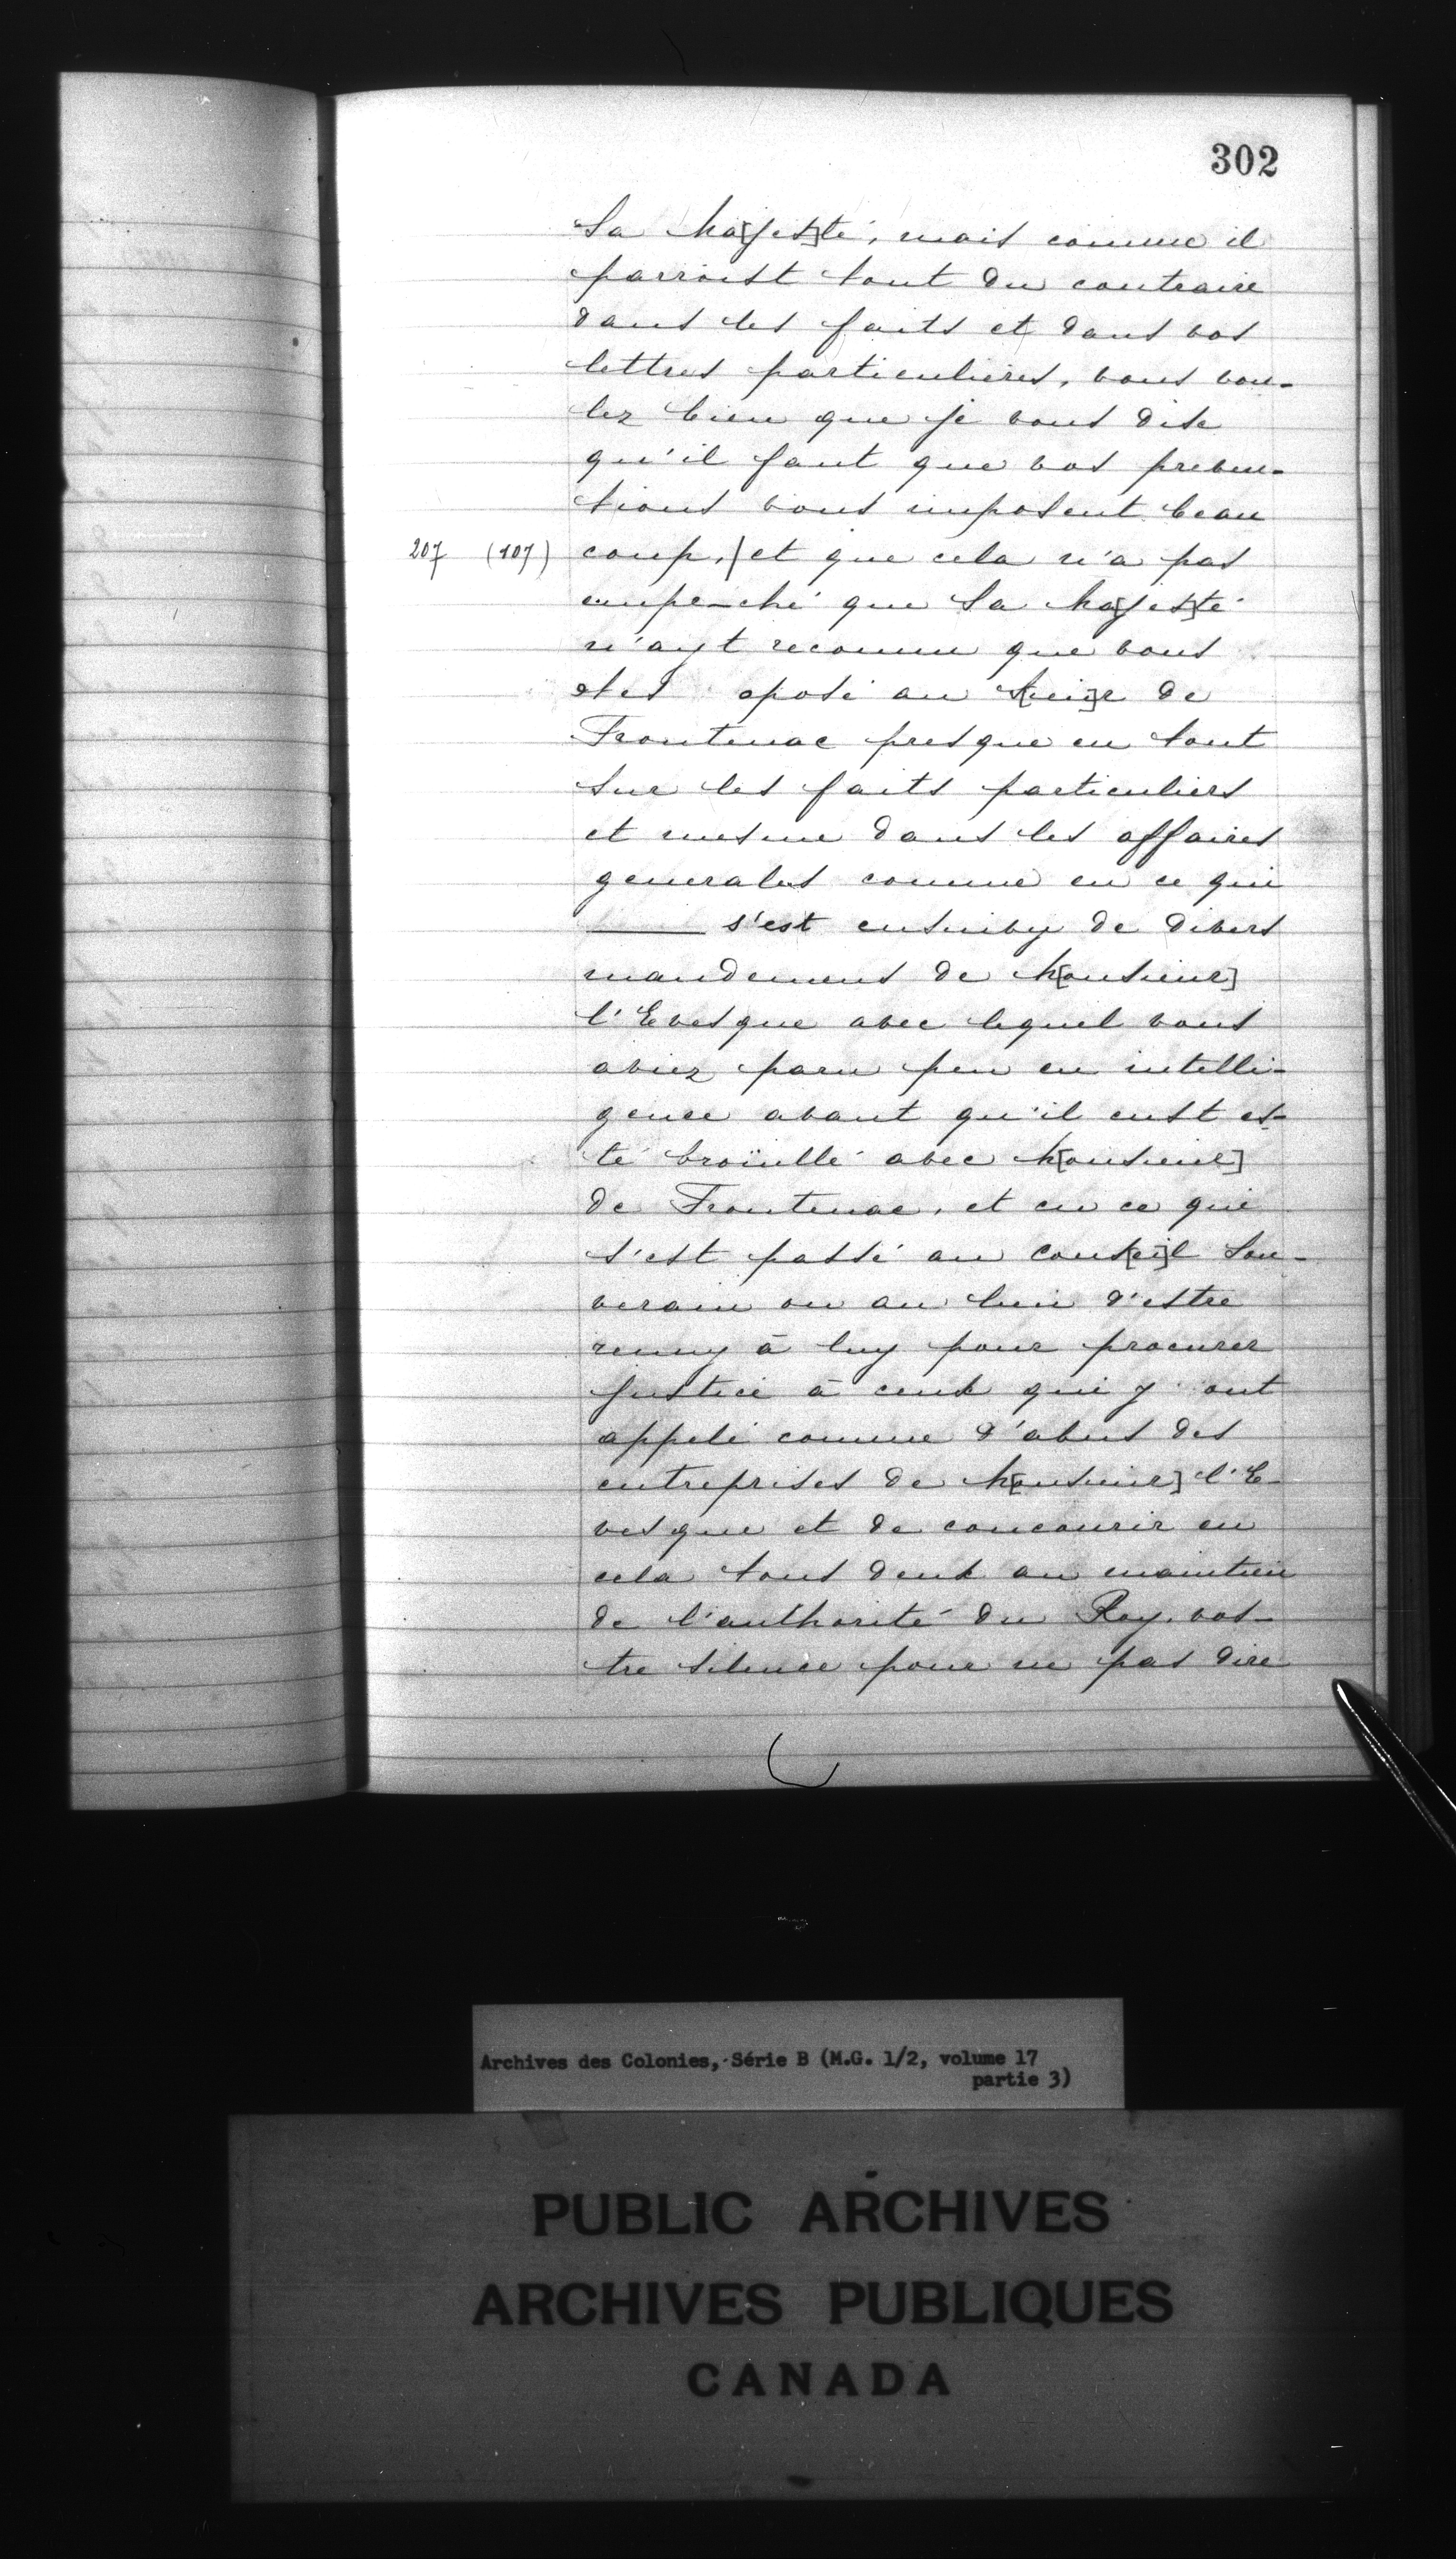 302
Sa Ma[jes]té, mais comme il
parroist tout du contraire
dans les faits et dans vos
lettres particulieres, vous vou-
lez bien que je vous dise
qu'il faut que vos preven-
tions vous imposent beau
207 (107) coup,/et que cela n'a pas
empe-ché que Sa Ma[jes]té
n'ayt reconnu que vous
etes oposé au S[ieu]r de
Frontenac presque en tout
sur les faits particuliers
et mesme dans les affaires
generales comme en ce qui
s'est ensuivy de divers
mandemens de M[onsieur]
l'Evesque avec lequel vous
aviez paru peu en intelli-
gence avant qu'il eust es-
té broüillé avec M[onsieur]
de Frontenac, et en ce qui
s'est passé au Cons[ei]l Sou-
verain ou au lieu d'estre
reuny à luy pour procurer
justice à ceux qui y ont
appelé comme d'abus des
entreprises de M[onsieur] l'E-
vesque et de concourir en
cela tous deux au maintien
de l'authorité du Roy, vos-
tre silence pour ne pas dire
Archives des Colonies, Série B (M.G. 1/2, volume 17
partie 3)
PUBLIC ARCHIVES
ARCHIVES PUBLIQUES
CANADA